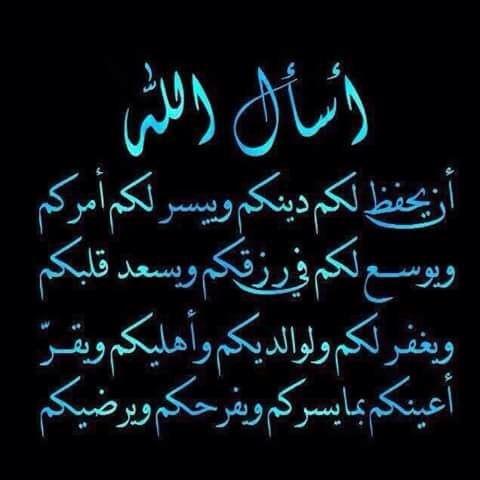 أسأل الله
أن يحفظ لكم دينكم وييسر لكم أمركم
ويوسع لكم في رزقكم ويسعد قلبكم
ويغفر لكم ولوالديكم وأهليكم ويقرّ
أعينكم بما يسركم ويفرحكم ويرضيكم